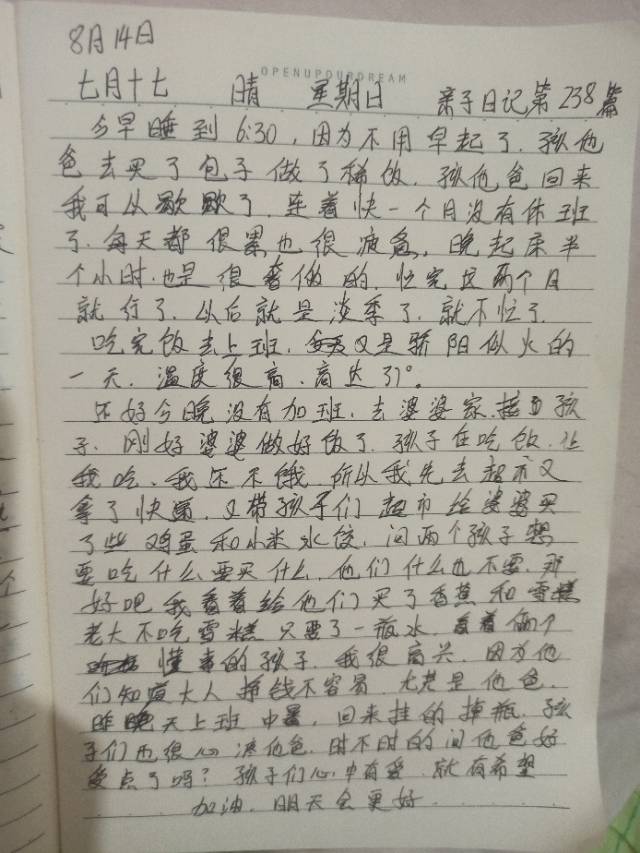 8月14日
OPENUPOURDREAM
七月十七 晴 星期日 亲子日记第238篇
今早睡到6:30，因为不用早起了.孩他
爸去买了包子做了稀饭.孩他爸回来
我可以歇歇了.连着快一个月没有休班
了.每天都很累也很疲惫，晚起床半
个小时.也是很奢侈的.忙完这两个月
就行了.以后就是淡季了.就不忙了.
吃完饭去上班.又是骄阳似火的
一天.温度很高.高达37°.
还好今晚没有加班.去婆婆家.接孩
子.刚好婆婆做好饭了.孩子在吃饭.让
我吃、我还不饿.所以我先去超市又
拿了快递.又带孩子们超市给婆婆买
了些鸡蛋和小米水饺.问两个孩子想
要吃什么要买什么.他们什么也不要.那
好吧我看着给他们买了香蕉和雪糕
老大不吃雪糕只要了一瓶水.看着俩个
懂事的孩子.我很高兴.因为他
们知道大人挣钱不容易.尤其是他爸.
昨天上班中暑，回来挂的掉瓶.孩
子们也很心疼他爸.时不时的问他爸好
受点了吗？孩子们心中有爱.就有希望
加油.明天会更好.